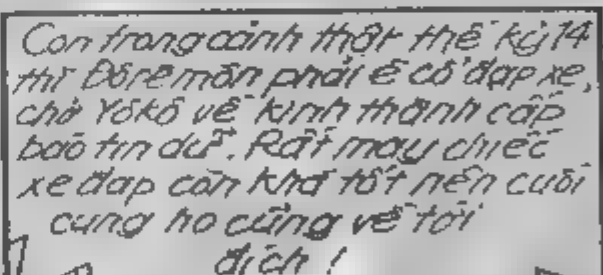 Con trong cảnh thật thế kỷ 14
thì Đôrêmôn phải è cổ đạp xe,
chở Yôkô về kinh thành cấp
báo tin dữ. Rất may chiếc
xe đạp còn khá tốt nên cuối
cùng họ cũng về tới
đích !